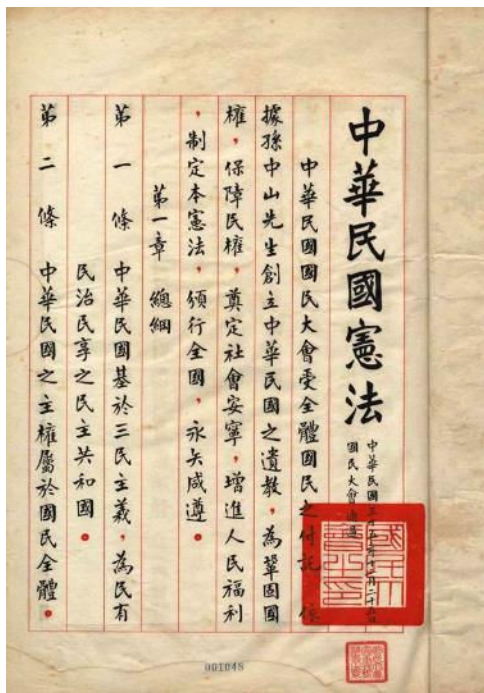 中華民國憲法
中華民國三十五年十二月二十五日
國民大會通過
中華民國國民大會受全體國民之付託，依
據孫中山先生創立中華民國之遺教，為鞏固國
權，保障民權，奠定社會安寧，增進人民福利
，制定本憲法，頒行全國，永矢咸遵。
第一章　總綱
第一條　中華民國基於三民主義，為民有
民治民享之民主共和國。
第二條　中華民國之主權屬於國民全體。
國民大會之印
001048